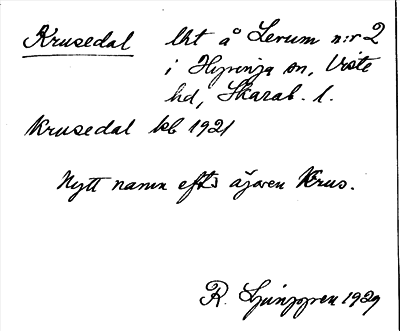 Krusedal lht å Lerum n:r 2
i Hyringa sn, Viste
hd, Skarab. l.
Krusedal kb 1921
Nytt namn eft. ägaren Krus.
R. Ljunggren 1929